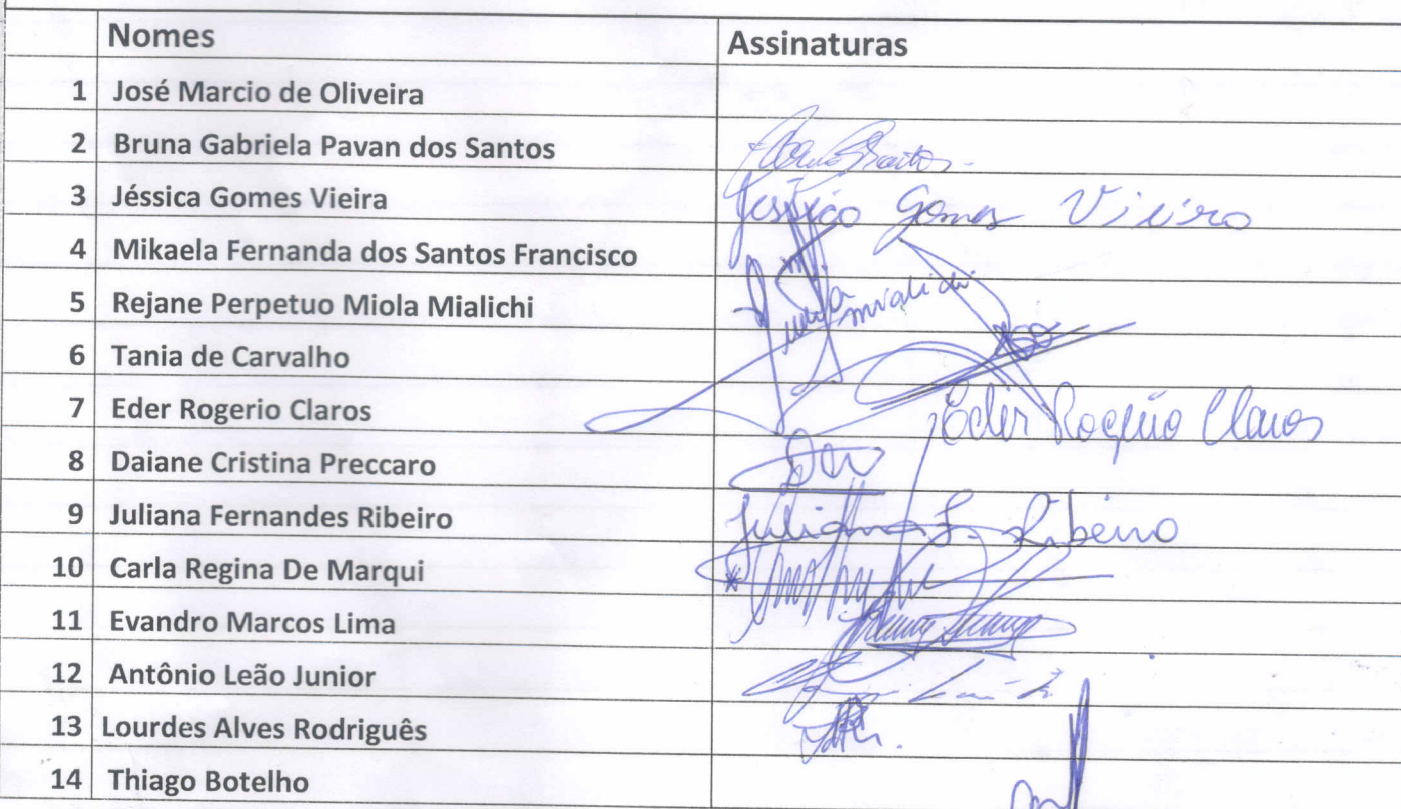 Nomes Assinaturas
1 José Marcio de Oliveira
2 Bruna Gabriela Pavan dos Santos
3 Jéssica Gomes Vieira Jessica Gomes Vieira
4 Mikaela Fernanda dos Santos Francisco
5 Rejane Perpetuo Miola Mialichi mialichi
6 Tania de Carvalho
7 Eder Rogerio Claros Eder Rogério Claros
8 Daiane Cristina Preccaro
9 Juliana Fernandes Ribeiro Juliana F. Ribeiro
10 Carla Regina De Marqui
11 Evandro Marcos Lima
12 Antônio Leão Junior
13 Lourdes Alves Rodriguês
14 Thiago Botelho